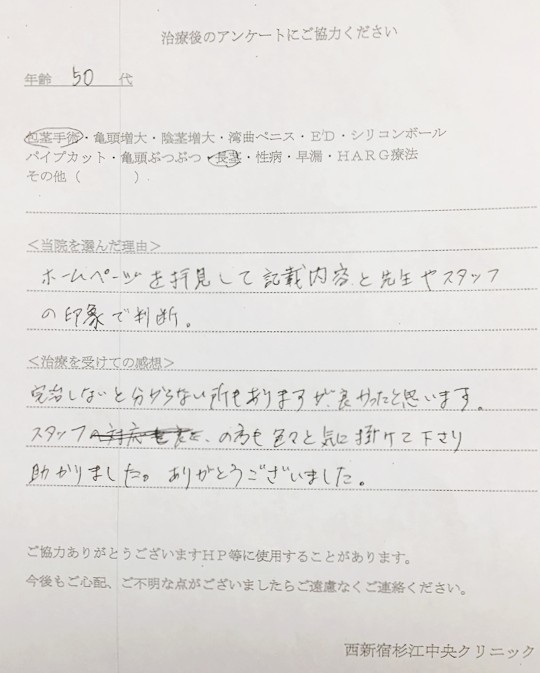 治療後のアンケートにご協力ください
年齢 50 代
包茎手術・亀頭増大・陰茎増大・湾曲ペニス・ED・シリコンボール
パイプカット・亀頭ぶつぶつ・長茎・性病・早漏・HARG療法
その他（ ）
＜当院を選んだ理由＞
ホームページを拝見して記載内容と先生やスタッフ
の印象で判断。
＜治療を受けての感想＞
完治しないと分からない所もありますが、良かったと思います。
スタッフの方も色々と気に掛けて下さり
助かりました。ありがとうございました。
ご協力ありがとうございますHP等に使用することがあります。
今後もご心配、ご不明な点がございましたらご遠慮なくご連絡ください。
西新宿杉江中央クリニック